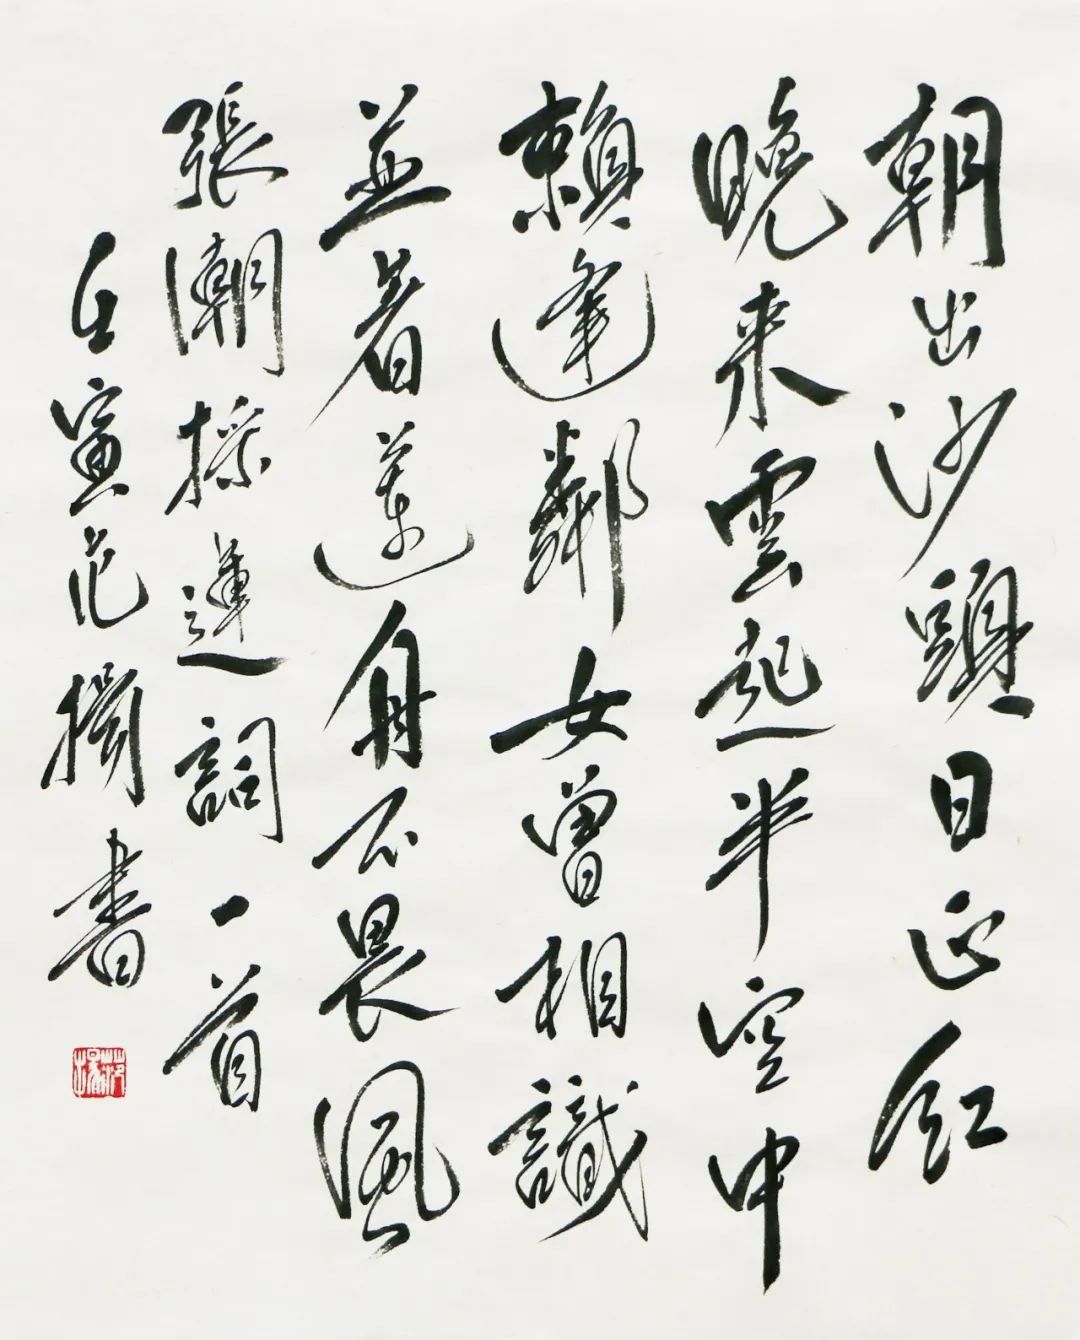 朝出沙頭日正紅
晚来雲起半空中
賴逢鄰女曾相識
並着蓮舟不畏風
張潮採蓮詞一首
壬寅范書